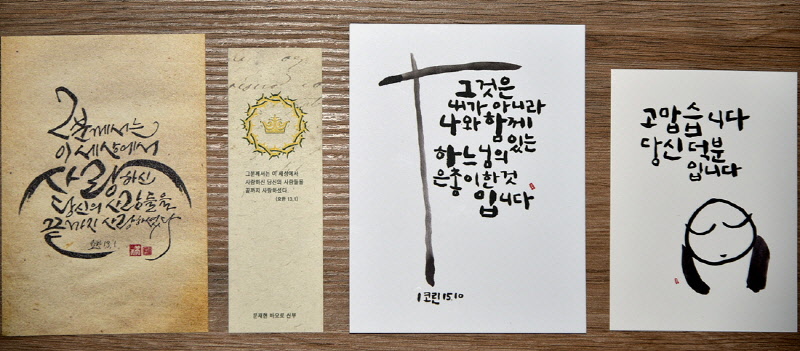 그분께서는
이 세상에서
사랑하신
당신의 사람들을
끝까지 사랑하셨다
요한 13,1
그분께서는 이 세상에서
사랑하신 당신의 사람들을
끝까지 사랑하셨다.
(요한 13,1)
문재현 바오로 신부
그것은
내가 아니라
나와 함께
있는
하느님의
은총이 한 것
입니다
1코린 15.10
고맙습니다
당신 덕분
입니다